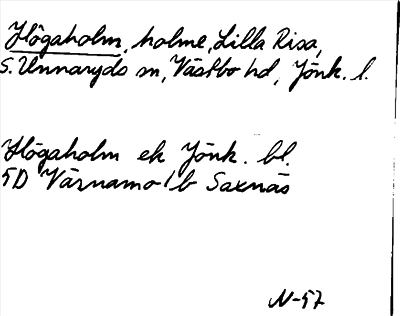 Högaholm, holme, Lilla Risa,
S. Unnaryds sn, Västbo hd, Jönk. l.
Högaholm ek Jönk. bl.
5D Värnamo 1b Saxnäs
N-57